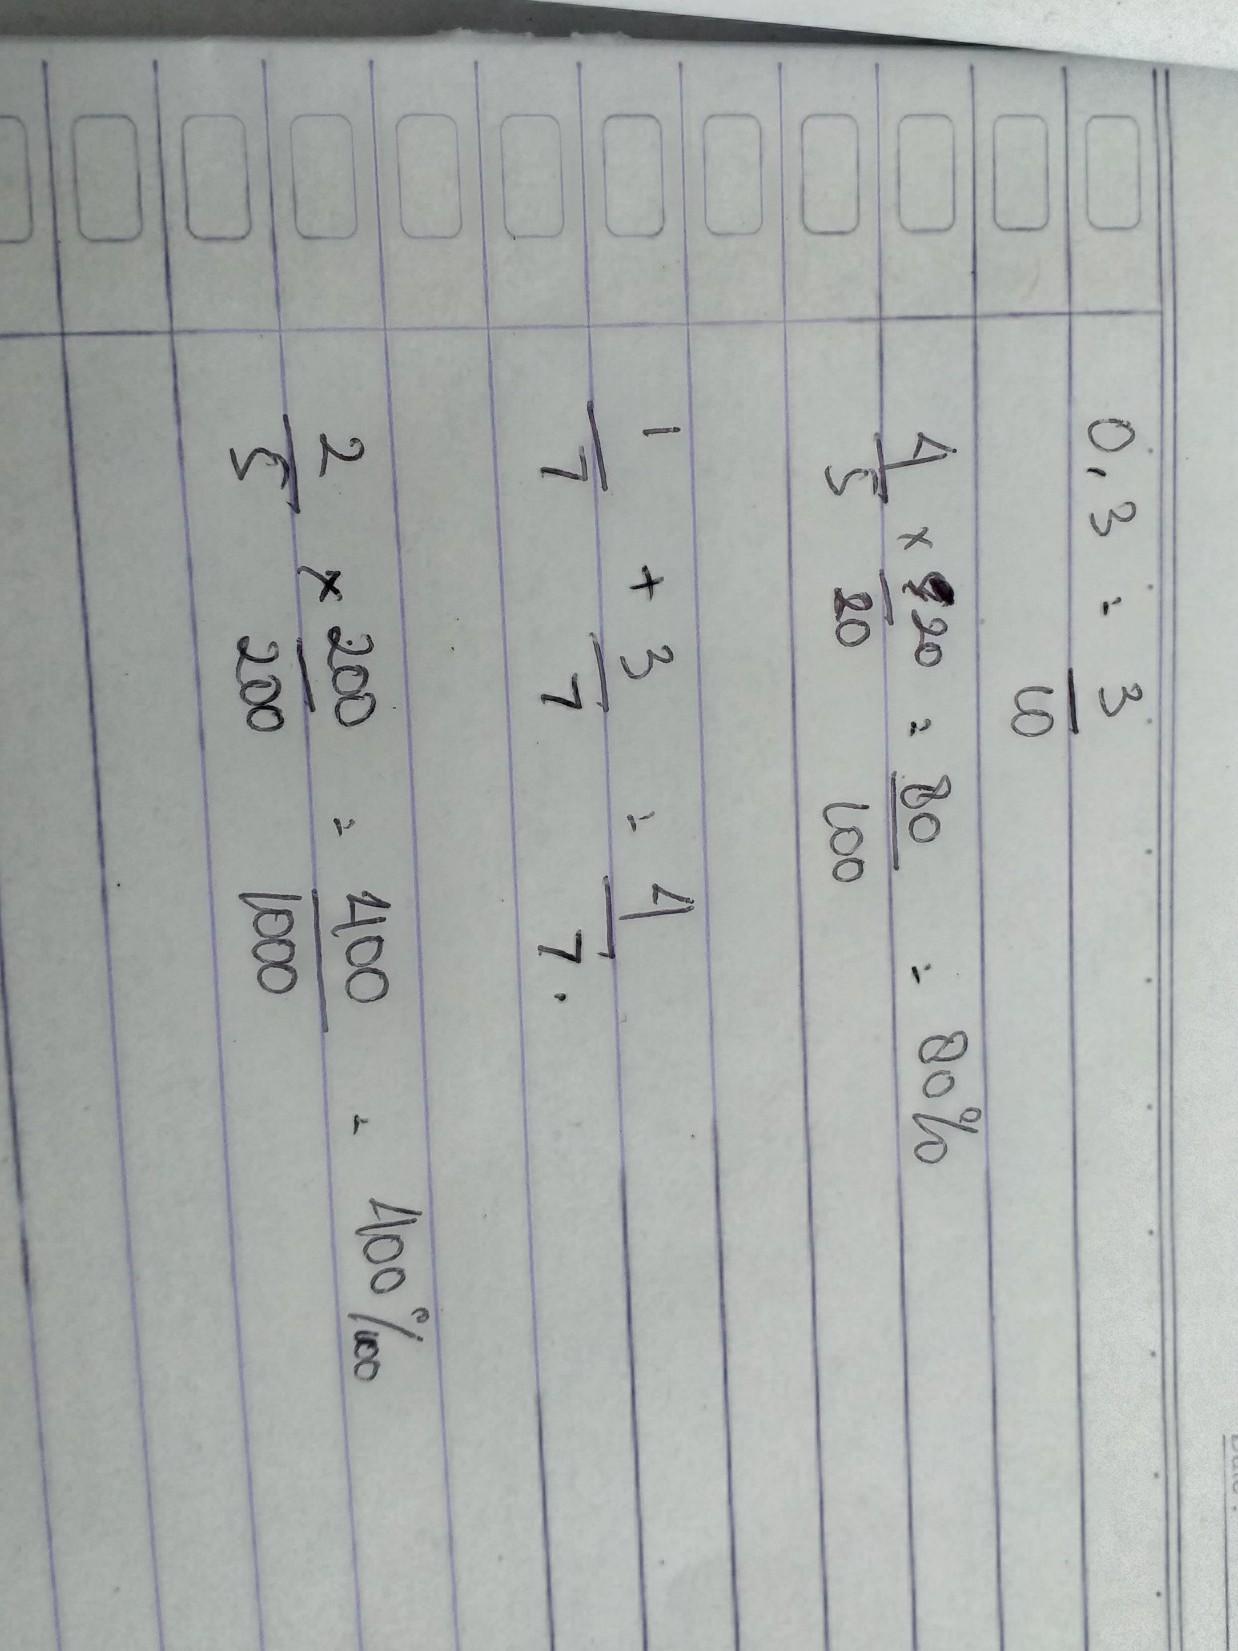 0,3 = 3/10
4/5 × 20/20 = 80/100 = 80%
1/7 + 3/7 = 4/7.
2/5 × 200/200 = 400/1000 = 400‰